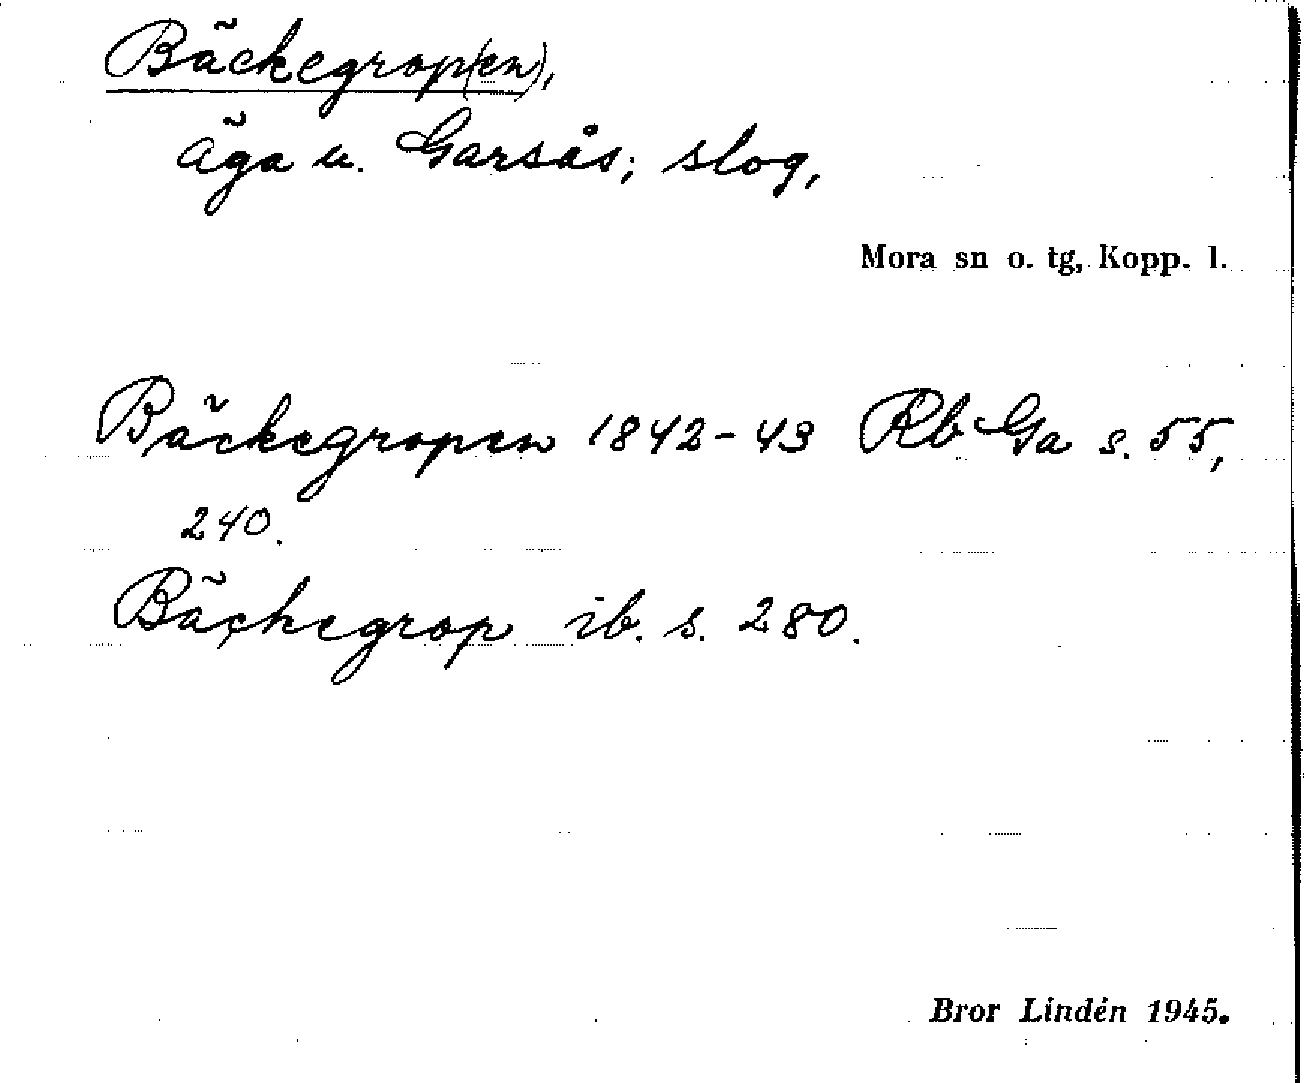 Bäckegrop(en),
äga u. Garsås; slog,
Mora sn o. tg, Kopp. l.
Bäckegropen 1842-43 Rb Ga s. 55,
240.
Bäckegrop ib. s. 280.
Bror Lindén 1945.